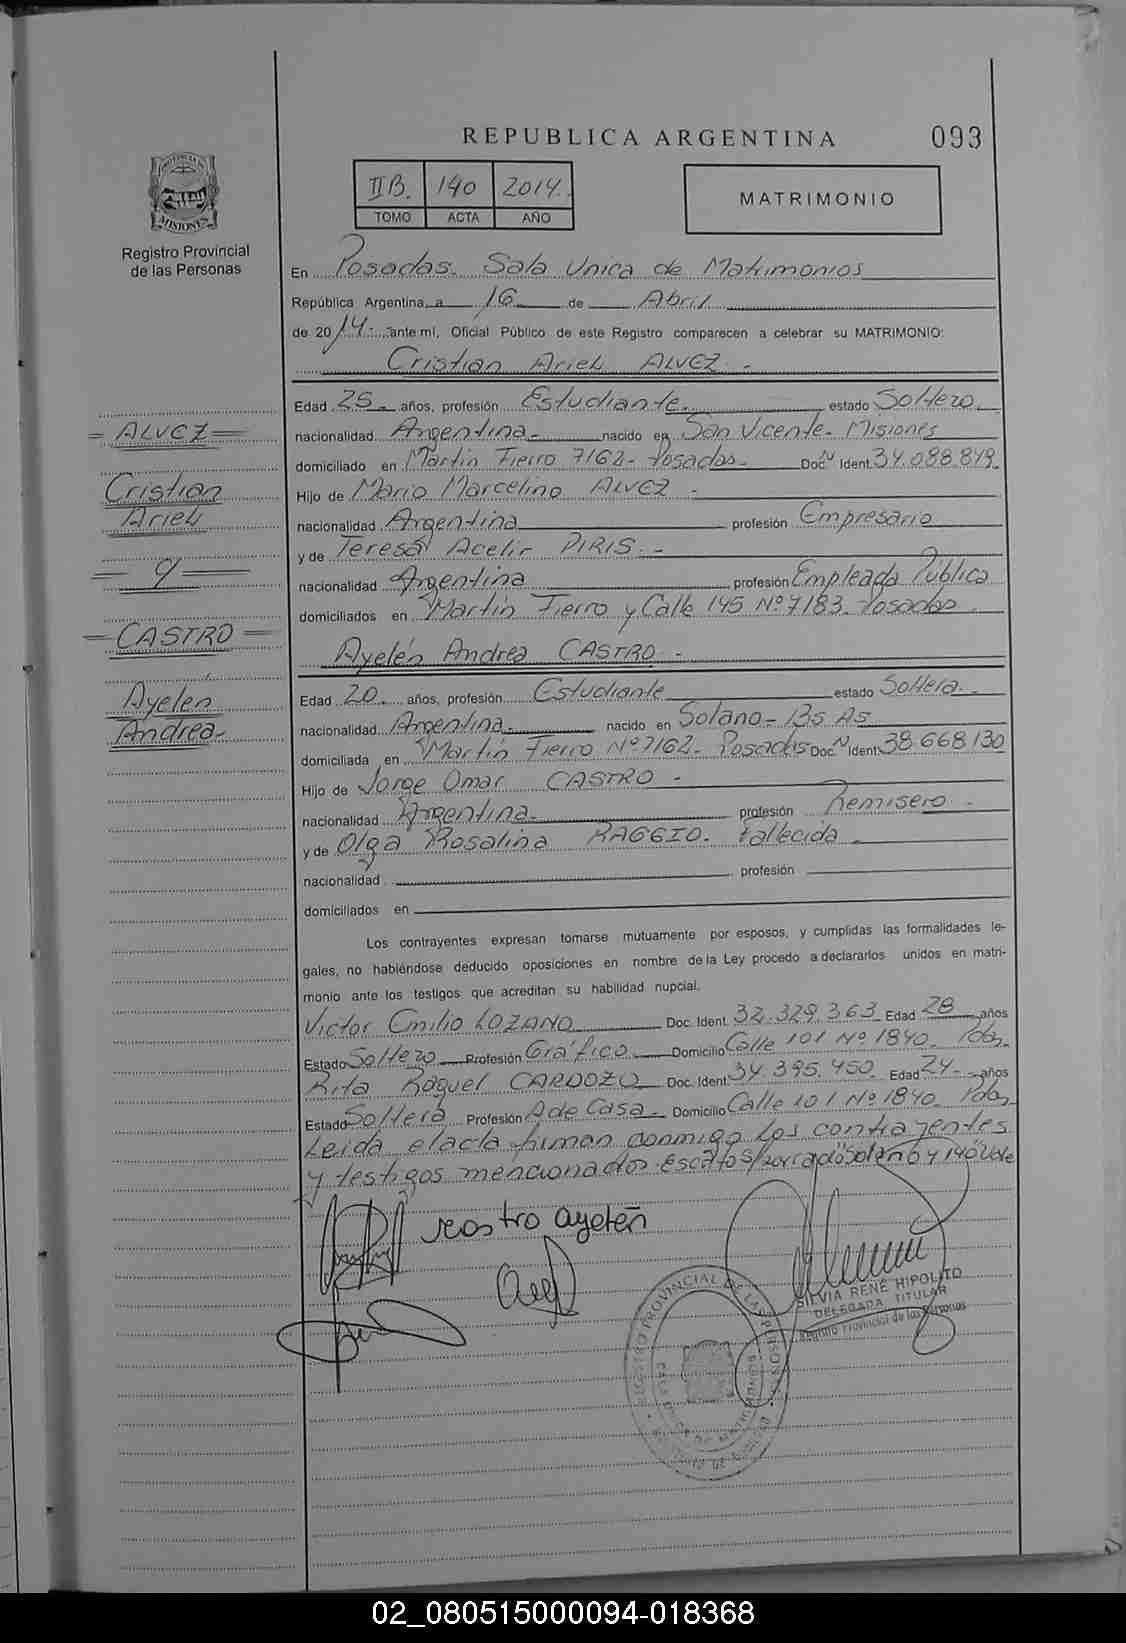 REPUBLICA ARGENTINA 093
PROVINCIA DE MISIONES
Registro Provincial
de las Personas
IIB. 140 2014.
TOMO ACTA AÑO
MATRIMONIO
En Posadas. Sala Unica de Matrimonios
República Argentina, a 16 de Abril
de 2014. ante mí, Oficial Público de este Registro comparecen a celebrar su MATRIMONIO:
Cristian Ariel ALVEZ.-
Edad 25 años, profesión Estudiante. estado Soltero.
nacionalidad Argentina- nacido en San Vicente- Misiones
domiciliado en Martín Fierro 7162- Posadas- Doc. N Ident. 34.088.849
Hijo de Mario Marcelino ALVEZ -
nacionalidad Argentina profesión Empresario
y de Teresa Acelir PIRIS.-
nacionalidad Argentina profesión Empleada Pública
domiciliados en Martín Fierro y Calle 145 Nº 7183- Posadas.
Ayelén Andrea CASTRO -
Edad 20 años, profesión Estudiante estado Soltera.-
nacionalidad Argentina- nacido en Solano- Bs As
domiciliada en Martín Fierro Nº 7162- Posadas Doc. N Ident. 38.668.130
Hijo de Jorge Omar CASTRO -
nacionalidad Argentina- profesión Remisero -
y de Olga Rosalina RAGGIO. Fallecida
nacionalidad profesión
domiciliados en
Los contrayentes expresan tomarse mutuamente por esposos, y cumplidas las formalidades le-
gales, no habiéndose deducido oposiciones en nombre de la Ley procedo a declararlos unidos en matri-
monio ante los testigos que acreditan su habilidad nupcial.
Victor Emilio LOZANO Doc. Ident. 32.329.363 Edad 28 años
Estado Soltero Profesión Gráfico. Domicilio Calle 101 Nº 1840. Pdas.
Rita Raquel CARDOZO Doc. Ident. 34.395.450 Edad 24- años
Estado Soltera Profesión A de Casa- Domicilio Calle 101 Nº 1840. Pdas
Leida el acta firman conmigo los contrayentes
y testigos mencionados. Escritos s/borrado "Solano y 140" Vale
castro ayelén
SILVIA RENÉ HIPOLITO
DELEGADA TITULAR
Registro Provincial de las Personas
REGISTRO PROVINCIAL DE LAS PERSONAS
= ALVEZ =
Cristian
Ariel
= y =
= CASTRO =
Ayelén
Andrea-
02_080515000094-018368